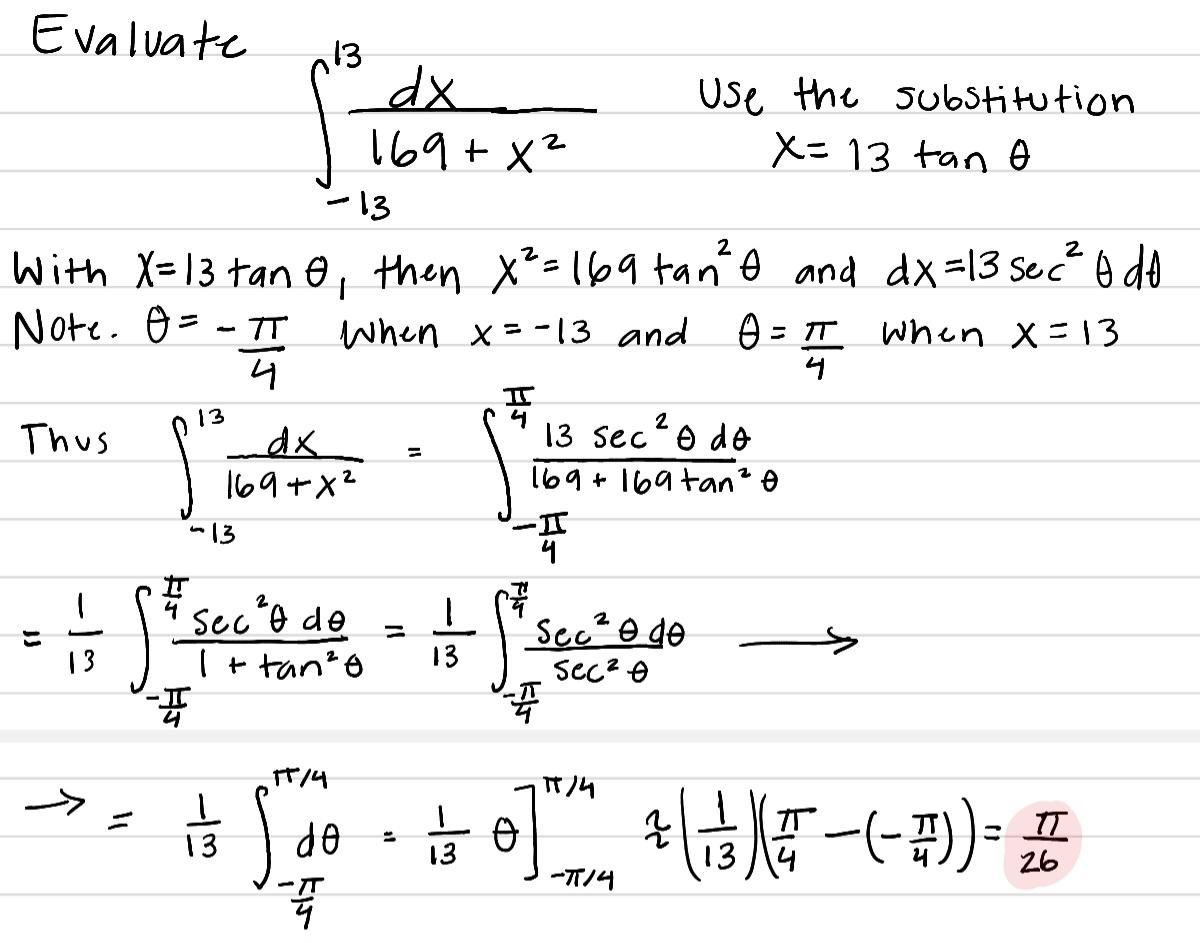 Evaluate
∫_{-13}^{13} dx / (169 + x²)   Use the substitution
x = 13 tan θ
With x=13 tan θ, then x²=169 tan²θ and dx=13 sec²θ dθ
Note. θ = -π/4 when x = -13 and θ = π/4 when x = 13
Thus ∫_{-13}^{13} dx / (169+x²) = ∫_{-π/4}^{π/4} 13 sec²θ dθ / (169 + 169 tan²θ)
= 1/13 ∫_{-π/4}^{π/4} sec²θ dθ / (1 + tan²θ) = 1/13 ∫_{-π/4}^{π/4} sec²θ dθ / sec²θ →
→ = 1/13 ∫_{-π/4}^{π/4} dθ = 1/13 θ]_{-π/4}^{π/4} (1/13)(π/4 - (-π/4)) = π/26